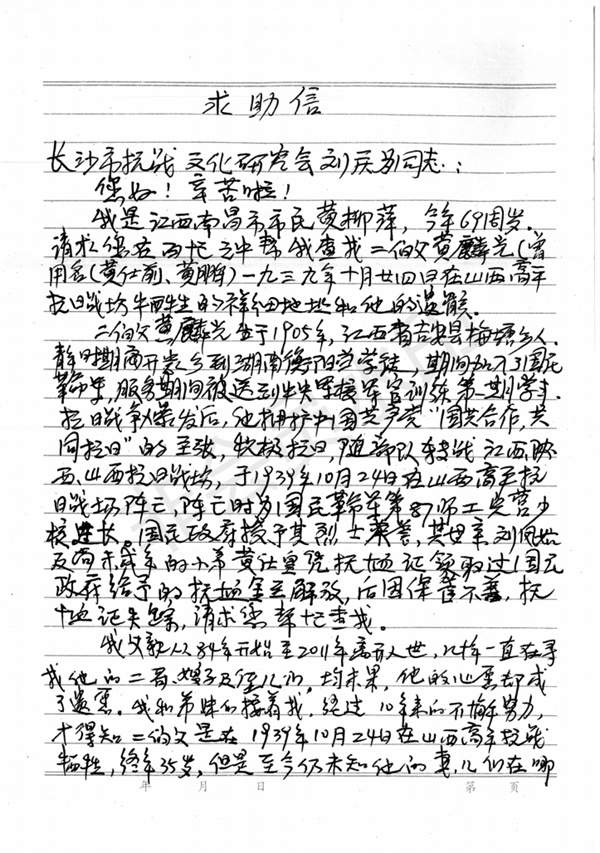 求助信
长沙市抗战文化研究会刘庆别同志:
您好!辛苦啦!
我是江西南昌市市民黄柳萍,今年69周岁。
请求您在百忙之中帮我查找二伯父黄麟光(曾
用名(黄仕前、黄鹏)一九三九年十月廿四日在山西高平
抗日战场牺牲的详细地址和他的遗骸。
二伯父黄麟光生于1905年,江西省吉安县梅塘乡人。
时期离开家乡到湖南衡阳当学徒,期间加入了国民
革命军,服务期间被送到中央军校军官训练第一期学习。
抗日战争爆发后,他拥护中国共产党“国共合作,共
同抗日”的主张,积极抗日,随部队转战江西、陕
西、山西抗日战场,于1939年10月24日在山西高平抗
日战场阵亡,阵亡时为国民革命军第87师工兵营少
校连长。国民政府授予其烈士荣誉,其母亲刘
及尚未成年的小弟黄仕凭抚恤证领取过国民
政府给予的抚恤金至解放,后因保管不善,抚
恤证失踪,请求您帮忙查找。
我父亲从84年开始至2011年离开人世,几十年一直在寻
找他的二哥、嫂子及侄儿们,均未果,他的心愿却成
了遗愿。我和弟妹们接着找,经过10年来的不懈努力,
才得知二伯父是在1939年10月24日在山西高平抗战
牺牲,终年35岁,但是至今仍未知他的妻、儿们在哪
年 月 日 第 页